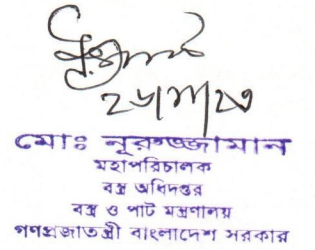 ২৬/১১/২৩
মোঃ নূরুজ্জামান
মহাপরিচালক
বস্ত্র অধিদপ্তর
বস্ত্র ও পাট মন্ত্রণালয়
গণপ্রজাতন্ত্রী বাংলাদেশ সরকার